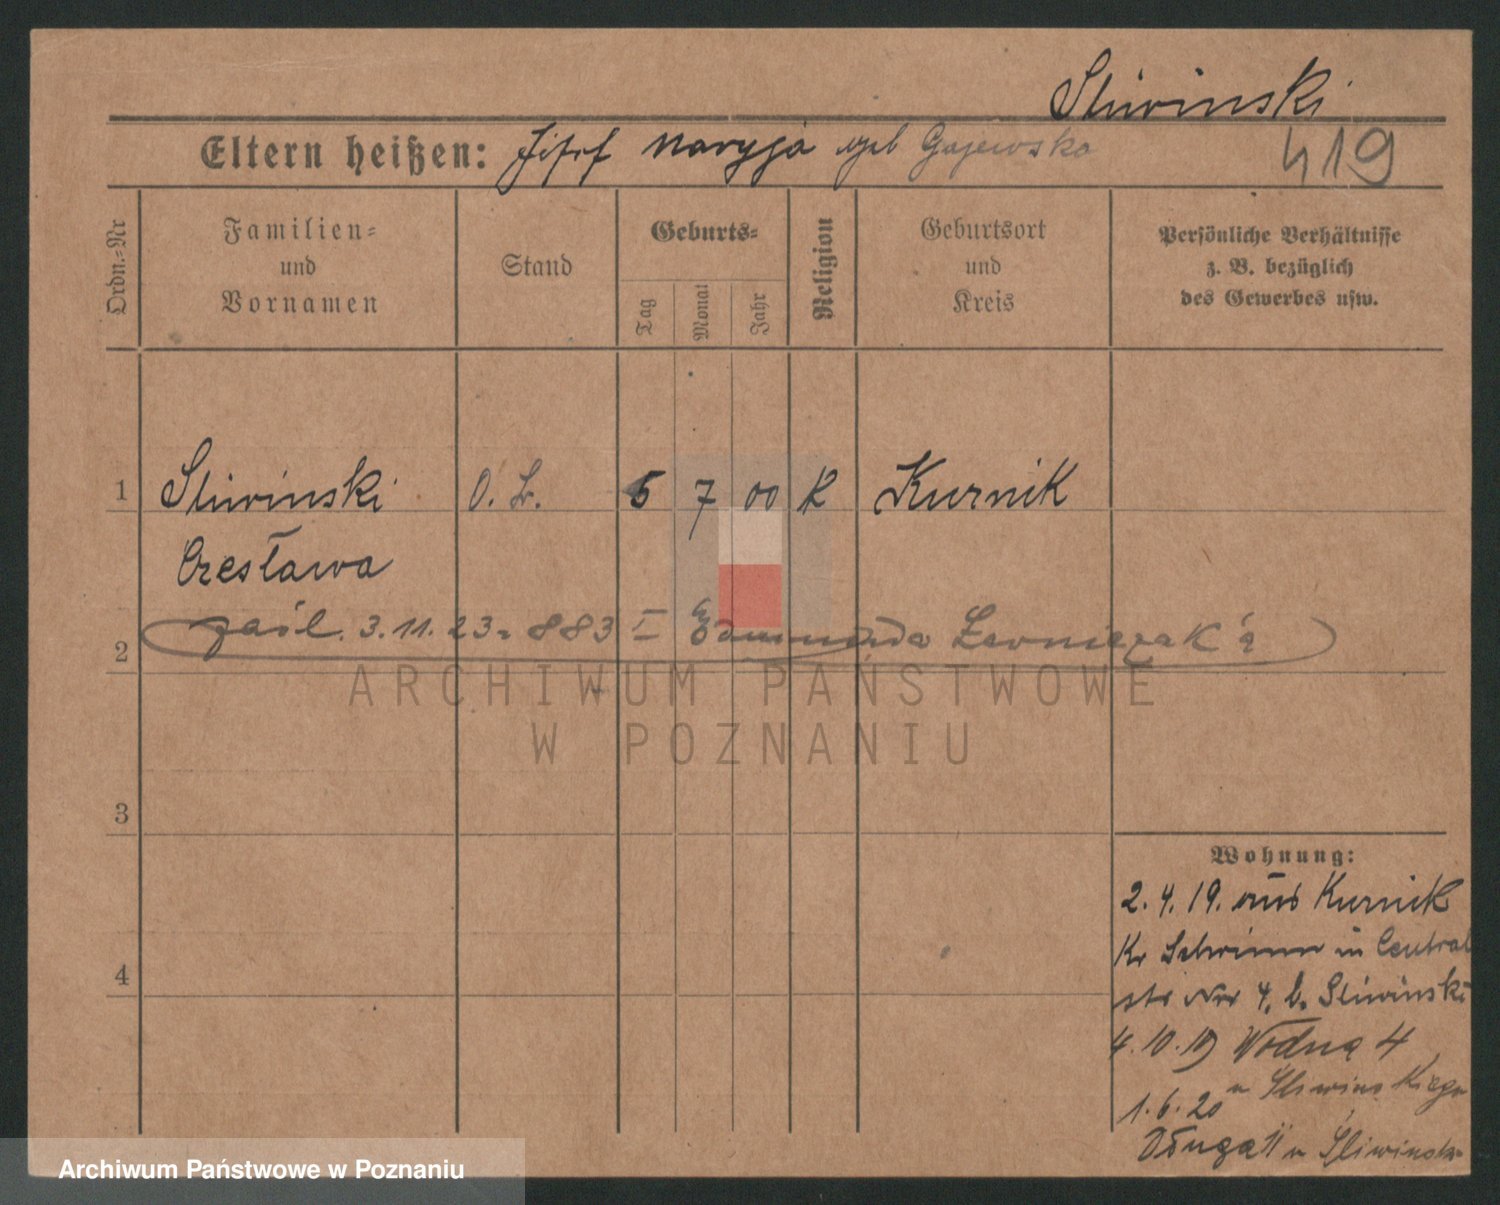 Sliwinski
Eltern heißen: Josef Maryja geb Gajewska
419
Ordn.=Nr
Familien=
und
Vornamen
Stand
Geburts=
Tag
Monat
Jahr
Religion
Geburtsort
und
Kreis
Persönliche Verhältnisse
z. B. bezüglich
des Gewerbes usw.
1 Sliwinski 5 7 00 K Kurnik
Czesława
zaśl. 3.11.23 883 I Edmunda
2
3
4
Wohnung:
2.4.19. aus Kurnik
Kr Schrimm in Central
str Nr 4, b. Sliwinski
4.10.19 Wodna 4
u Śliwinskiego
1.6.20
Długa 11 u Śliwinski
ARCHIWUM PAŃSTWOWE
W POZNANIU
Archiwum Państwowe w Poznaniu